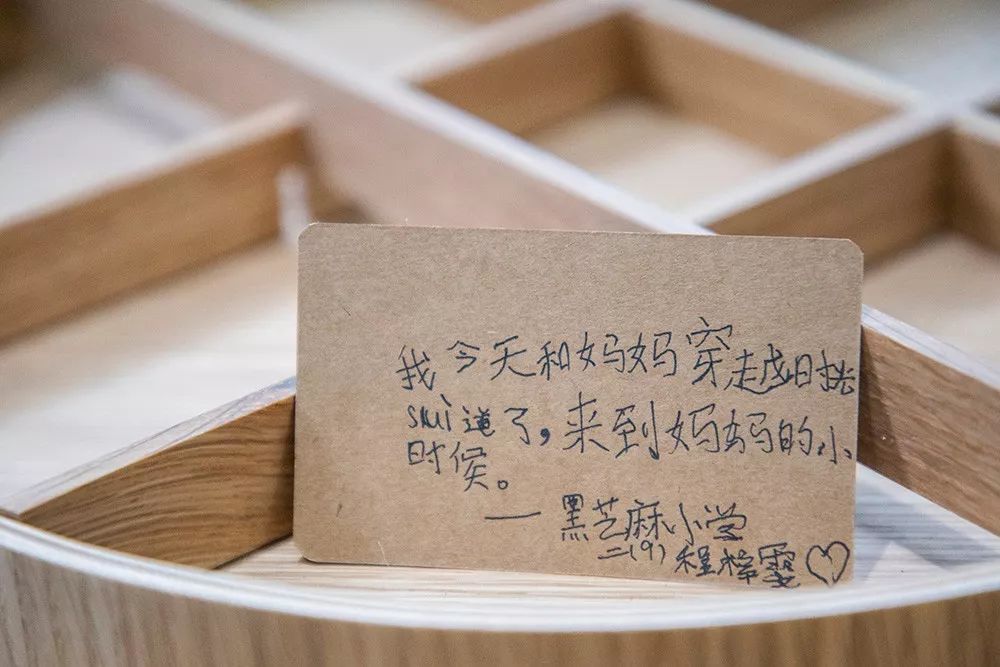 我今天和妈妈穿越时光
suì道了,来到妈妈的小
时候。
— 黑芝麻小学
二(9) 程梓雯♡